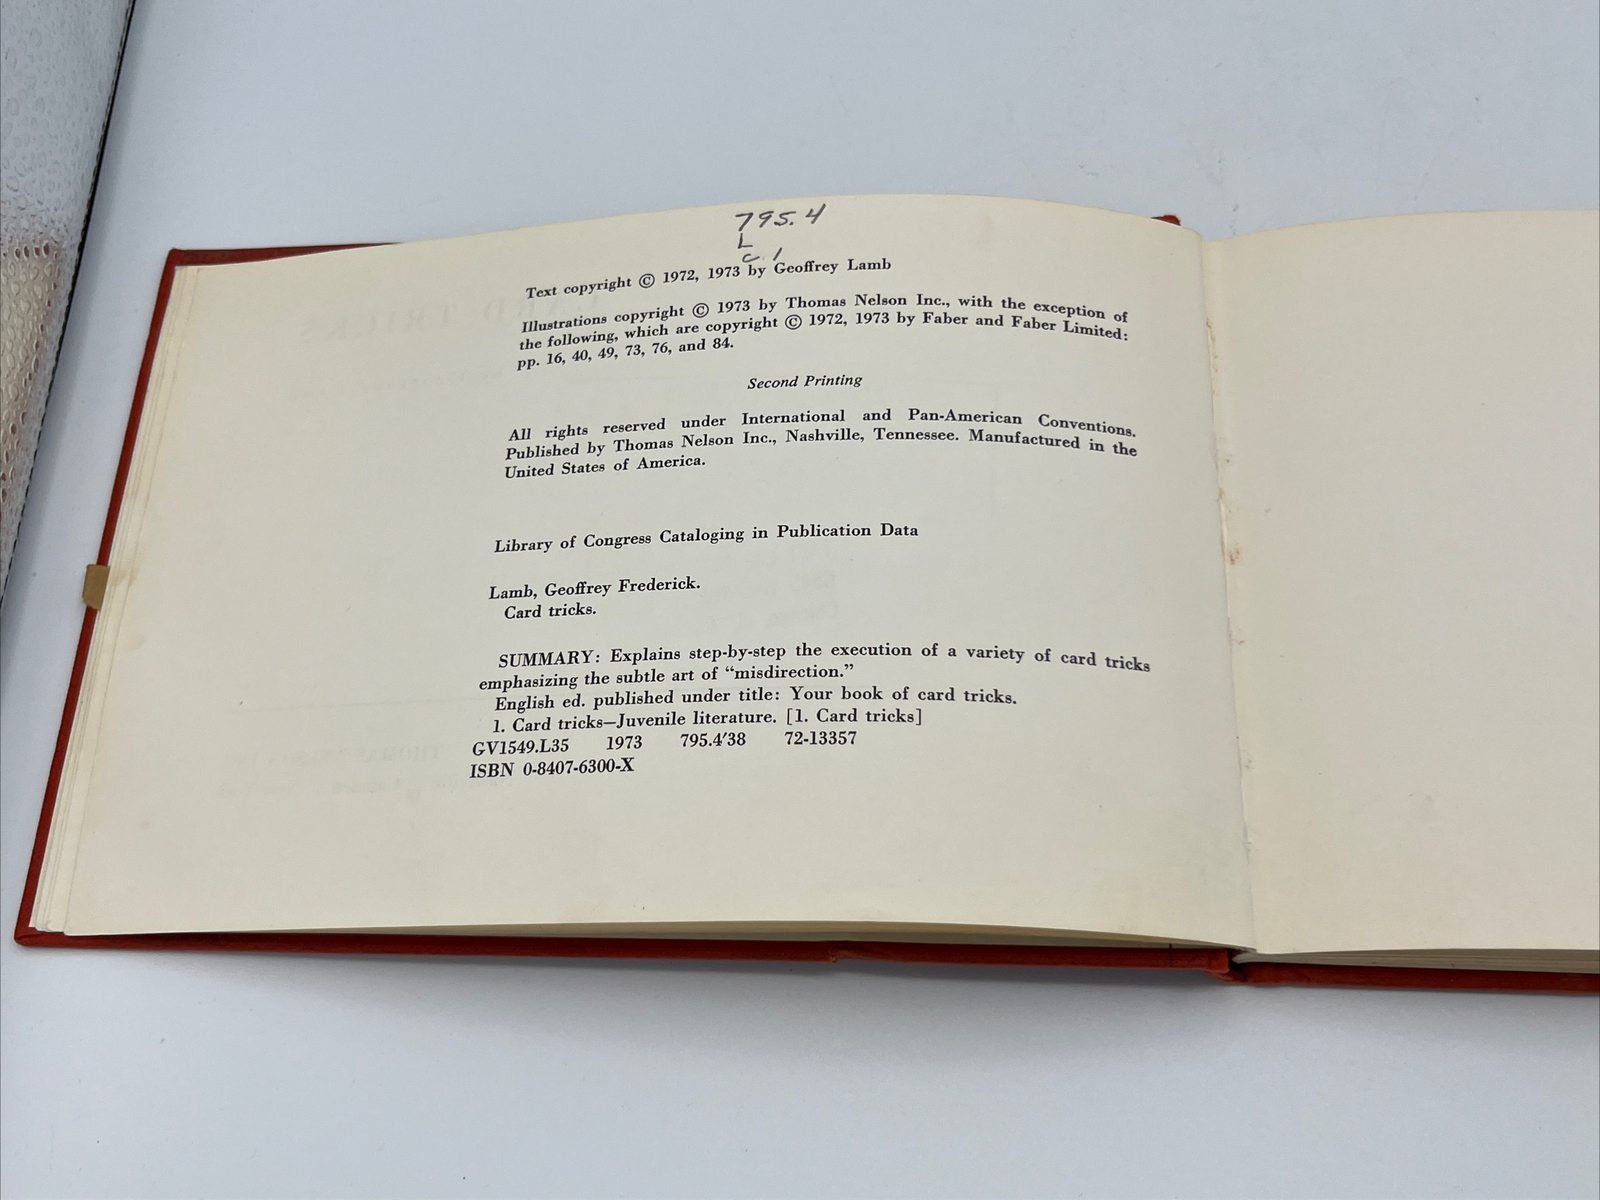 795.4
L
c.1
Text copyright © 1972, 1973 by Geoffrey Lamb
Illustrations copyright © 1973 by Thomas Nelson Inc., with the exception of
the following, which are copyright © 1972, 1973 by Faber and Faber Limited:
pp. 16, 40, 49, 73, 76, and 84.
Second Printing
All rights reserved under International and Pan-American Conventions.
Published by Thomas Nelson Inc., Nashville, Tennessee. Manufactured in the
United States of America.
Library of Congress Cataloging in Publication Data
Lamb, Geoffrey Frederick.
Card tricks.
SUMMARY: Explains step-by-step the execution of a variety of card tricks
emphasizing the subtle art of “misdirection.”
English ed. published under title: Your book of card tricks.
1. Card tricks—Juvenile literature. [1. Card tricks]
GV1549.L35 1973 795.4′38 72-13357
ISBN 0-8407-6300-X